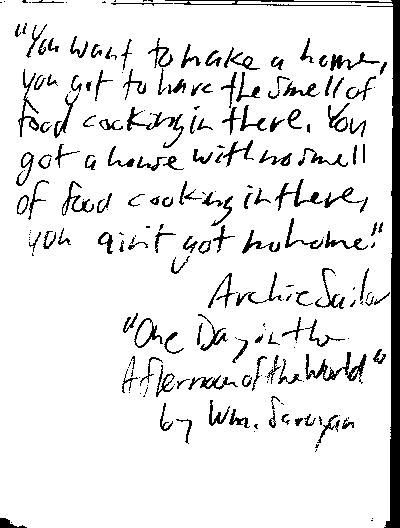 "You want to make a home,
you got to have the smell of
food cooking in there. You
got a house with no smell
of food cooking in there,
you ain't got no home."
Archie Sailor
"One Day in the
Afternoon of the World"
by Wm. Saroyan